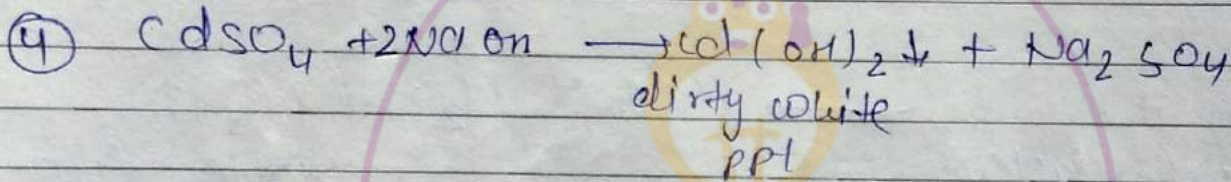 ④ CdSO₄ + 2NaOH ⟶ Cd(OH)₂↓ + Na₂SO₄
dirty white
ppt